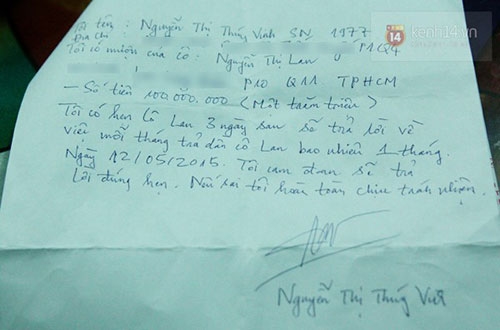 kenh14.vn
Tôi tên : Nguyễn Thị Thúy Vinh SN 1977
Địa chỉ : P1Q4
Tôi có mượn của cô : Nguyễn Thị Lan
P10 Q11 TPHCM
— Số tiền 100.000.000 (Một trăm triệu)
Tôi có hẹn Cô Lan 3 ngày sau sẽ trả lời về
việc mỗi tháng trả dần cô Lan bao nhiêu 1 tháng.
Ngày 12/05/2015. Tôi cam đoan sẽ trả
lời đúng hẹn. Nếu sai tôi hoàn toàn chịu trách nhiệm.
Nguyễn Thị Thúy